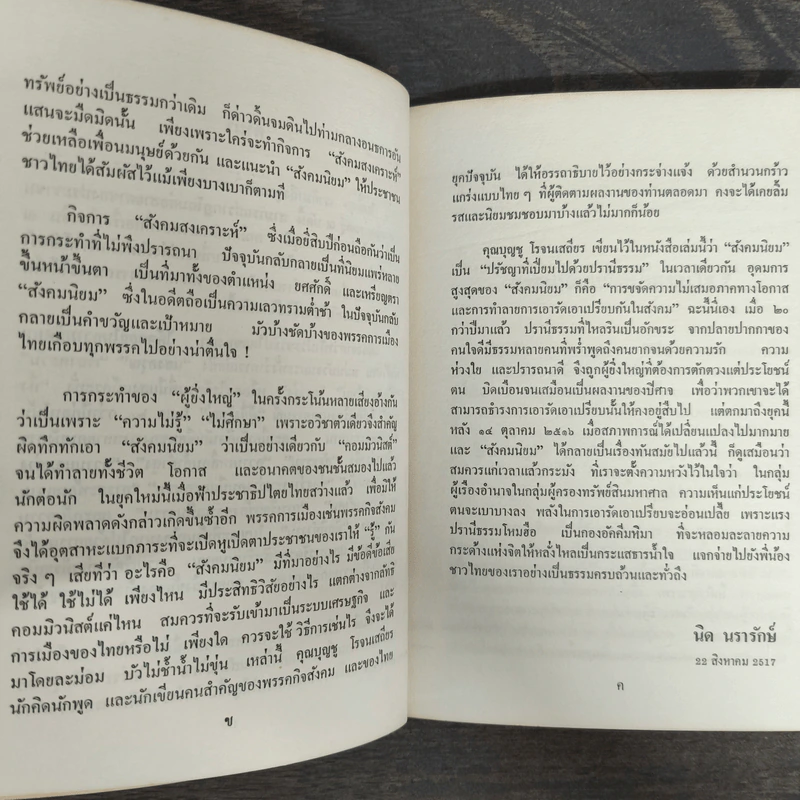 ทรัพย์อย่างเป็นธรรมกว่าเดิม ก็ด่าวดิ้นจมดินไปท่ามกลางอนธการอัน
แสนจะมืดมิดนั้น เพียงเพราะใคร่จะทำกิจการ “สังคมสงเคราะห์”
ช่วยเหลือเพื่อนมนุษย์ด้วยกัน และแนะนำ “สังคมนิยม” ให้ประชาชน
ชาวไทยได้สัมผัสไว้แม้เพียงบางเบาก็ตามที
กิจการ “สังคมสงเคราะห์” ซึ่งเมื่อยี่สิบปีก่อนถือกันว่าเป็น
การกระทำที่ไม่พึงปรารถนา ปัจจุบันกลับกลายเป็นที่นิยมแพร่หลาย
ขึ้นหน้าขึ้นตา เป็นที่มาทั้งของตำแหน่ง ยศศักดิ์ และเหรียญตรา
“สังคมนิยม” ซึ่งในอดีตถือเป็นความเลวทรามต่ำช้า ในปัจจุบันกลับ
กลายเป็นคำขวัญและเป้าหมาย มัวบ้างชัดบ้างของพรรคการเมือง
ไทยเกือบทุกพรรคไปอย่างน่าตื่นใจ !
การกระทำของ “ผู้ยิ่งใหญ่” ในครั้งกระโน้นหลายเสียงอ้างกัน
ว่าเป็นเพราะ “ความไม่รู้” “ไม่ศึกษา” เพราะอวิชาตัวเดียวจึงสำคัญ
ผิดทึกทักเอา “สังคมนิยม” ว่าเป็นอย่างเดียวกับ “คอมมิวนิสต์”
จนได้ทำลายทั้งชีวิต โอกาส และอนาคตของชนชั้นสมองไปแล้ว
นักต่อนัก ในยุคใหม่นี้เมื่อฟ้าประชาธิปไตยไทยสว่างแล้ว เพื่อมิให้
ความผิดพลาดดังกล่าวเกิดขึ้นซ้ำอีก พรรคการเมืองเช่นพรรคกิจสังคม
จึงได้อุตสาหะแบกภาระที่จะเปิดหูเปิดตาประชาชนของเราให้ “รู้” กัน
จริง ๆ เสียที่ว่า อะไรคือ “สังคมนิยม” มีที่มาอย่างไร มีข้อดีข้อเสีย
ใช้ได้ ใช้ไม่ได้ เพียงไหน มีประสิทธิวิสัยอย่างไร แตกต่างจากลัทธิ
คอมมิวนิสต์แค่ไหน สมควรที่จะรับเข้ามาเป็นระบบเศรษฐกิจ และ
การเมืองของไทยหรือไม่ เพียงใด ควรจะใช้ วิธีการเช่นไร จึงจะได้
มาโดยละม่อม บัวไม่ช้ำน้ำไม่ขุ่น เหล่านี้ คุณบุญชู โรจนเสถียร
นักคิดนักพูด และนักเขียนคนสำคัญของพรรคกิจสังคม และของไทย
ข
ยุคปัจจุบัน ได้ให้อรรถาธิบายไว้อย่างกระจ่างแจ้ง ด้วยสำนวนกร้าว
แกร่งแบบไทย ๆ ที่ผู้ติดตามผลงานของท่านตลอดมา คงจะได้เคยลิ้ม
รสและนิยมชมชอบมาบ้างแล้วไม่มากก็น้อย
คุณบุญชู โรจนเสถียร เขียนไว้ในหนังสือเล่มนี้ว่า “สังคมนิยม”
เป็น “ปรัชญาที่เปี่ยมไปด้วยปรานีธรรม” ในเวลาเดียวกัน อุดมการ
สูงสุดของ “สังคมนิยม” ก็คือ “การขจัดความไม่เสมอภาคทางโอกาส
และการทำลายการเอารัดเอาเปรียบกันในสังคม” ฉะนี้นี่เอง เมื่อ ๒๐
กว่าปีมาแล้ว ปรานีธรรมที่ไหลรินเป็นอักขระ จากปลายปากกาของ
คนใจดีมีธรรมหลายคนที่พร่ำพูดถึงคนยากจนด้วยความรัก ความ
ห่วงใย และปรารถนาดี จึงถูกผู้ยิ่งใหญ่ที่ต้องการตักตวงแต่ประโยชน์
ตน บิดเบือนจนเสมือนเป็นผลงานของปีศาจ เพื่อว่าพวกเขาจะได้
สามารถธำรงการเอารัดเอาเปรียบนั้นให้คงอยู่สืบไป แต่ตกมาถึงยุคนี้
หลัง ๑๔ ตุลาคม ๒๕๑๖ เมื่อสภาพการณ์ได้เปลี่ยนแปลงไปมากมาย
และ “สังคมนิยม” ได้กลายเป็นเรื่องทันสมัยไปแล้วนี้ ก็ดูเสมือนว่า
สมควรแก่เวลาแล้วกระมัง ที่เราจะตั้งความหวังไว้ในใจว่า ในกลุ่ม
ผู้เรืองอำนาจในกลุ่มผู้ครองทรัพย์สินมหาศาล ความเห็นแก่ประโยชน์
ตนจะเบาบางลง พลังในการเอารัดเอาเปรียบจะอ่อนเปลี้ย เพราะแรง
ปรานีธรรมโหมฮือ เป็นกองอัคคีมหิมา ที่จะหลอมละลายความ
กระด้างแห่งจิตให้หลั่งไหลเป็นกระแสธารน้ำใจ แจกจ่ายไปยังพี่น้อง
ชาวไทยของเราอย่างเป็นธรรมครบถ้วนและทั่วถึง
นิด นรารักษ์
22 สิงหาคม 2517
ค